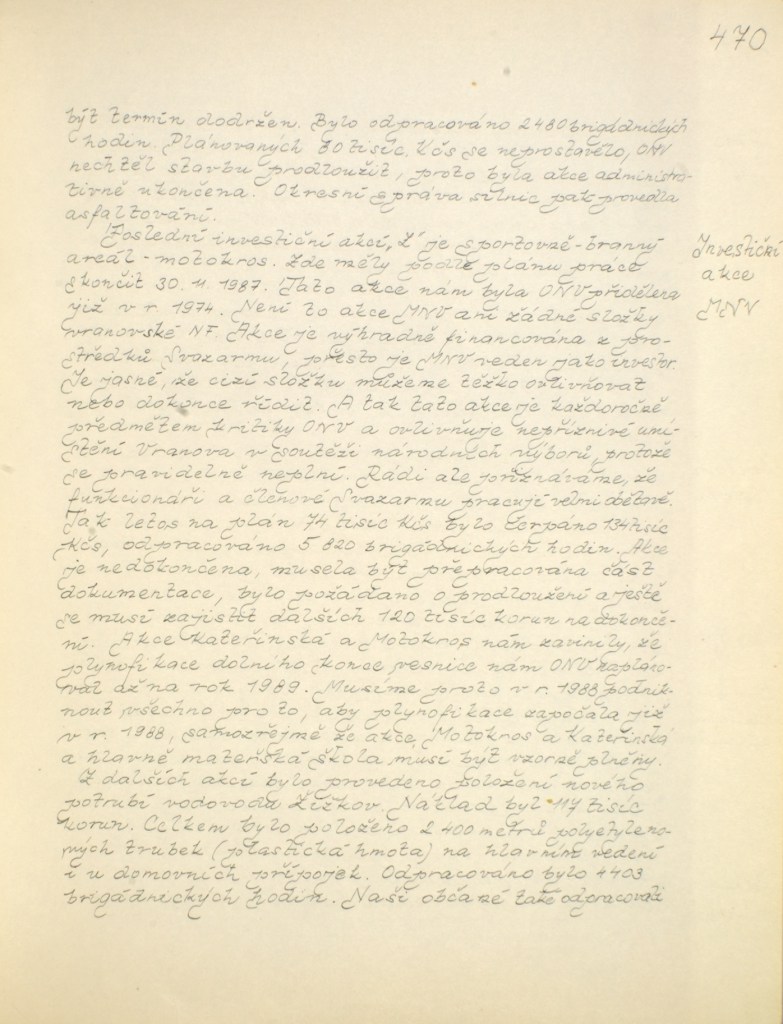 470
být termín dodržen. Bylo odpracováno 2480 brigádnických
hodin. Plánovaných 80 tisíc Kčs se neprostavělo, ONV
nechtěl stavbu prodloužit, proto byla akce administra-
tivně ukončena. Okresní správa silnic pak provedla
asfaltování.
Poslední investiční akcí, "Z" je sportovně-branný
areál - motokros. Zde měly podle plánu práce
skončit 30. 11. 1987. Tato akce nám byla ONV přidělena
již v r. 1974. Není to akce MNV ani žádné složky
vranovské NF. Akce je výhradně financována z pro-
středků Svazarmu, přesto je MNV veden jako investor.
Je jasné, že cizí složku můžeme těžko ovlivňovat
nebo dokonce řídit. A tak tato akce je každoročně
předmětem kritiky ONV a ovlivňuje nepříznivě umí-
stění Vranova v soutěži národních výborů, protože
se pravidelně neplní. Rádi ale přiznáváme, že
funkcionáři a členové Svazarmu pracují velmi obětavě.
Tak letos na plán 74 tisíc Kčs bylo čerpáno 134 tisíc
Kčs, odpracováno 5 820 brigádnických hodin. Akce
je nedokončena, musela být přepracována část
dokumentace, bylo požádáno o prodloužení a ještě
se musí zajistit dalších 120 tisíc korun na dokonče-
ní. Akce Kateřinská a Motokros nám zavinily, že
plynofikace dolního konce vesnice nám ONV naplano-
val až na rok 1989. Musíme proto v r. 1988 podnik-
nout všechno pro to, aby plynofikace započala již
v r. 1988, samozřejmě že akce Motokros a Kateřinská
a hlavně mateřská škola musí být vzorně plněny.
Z dalších akcí bylo provedeno položení nového
potrubí vodovodu Žižkov. Náklad byl 117 tisíc
korun. Celkem bylo položeno 2 400 metrů polyetyleno-
vých trubek (plastická hmota) na hlavním vedení
i u domovních přípojek. Odpracováno bylo 4403
brigádnických hodin. Naši občané také odpracovali
Investiční
akce
MNV